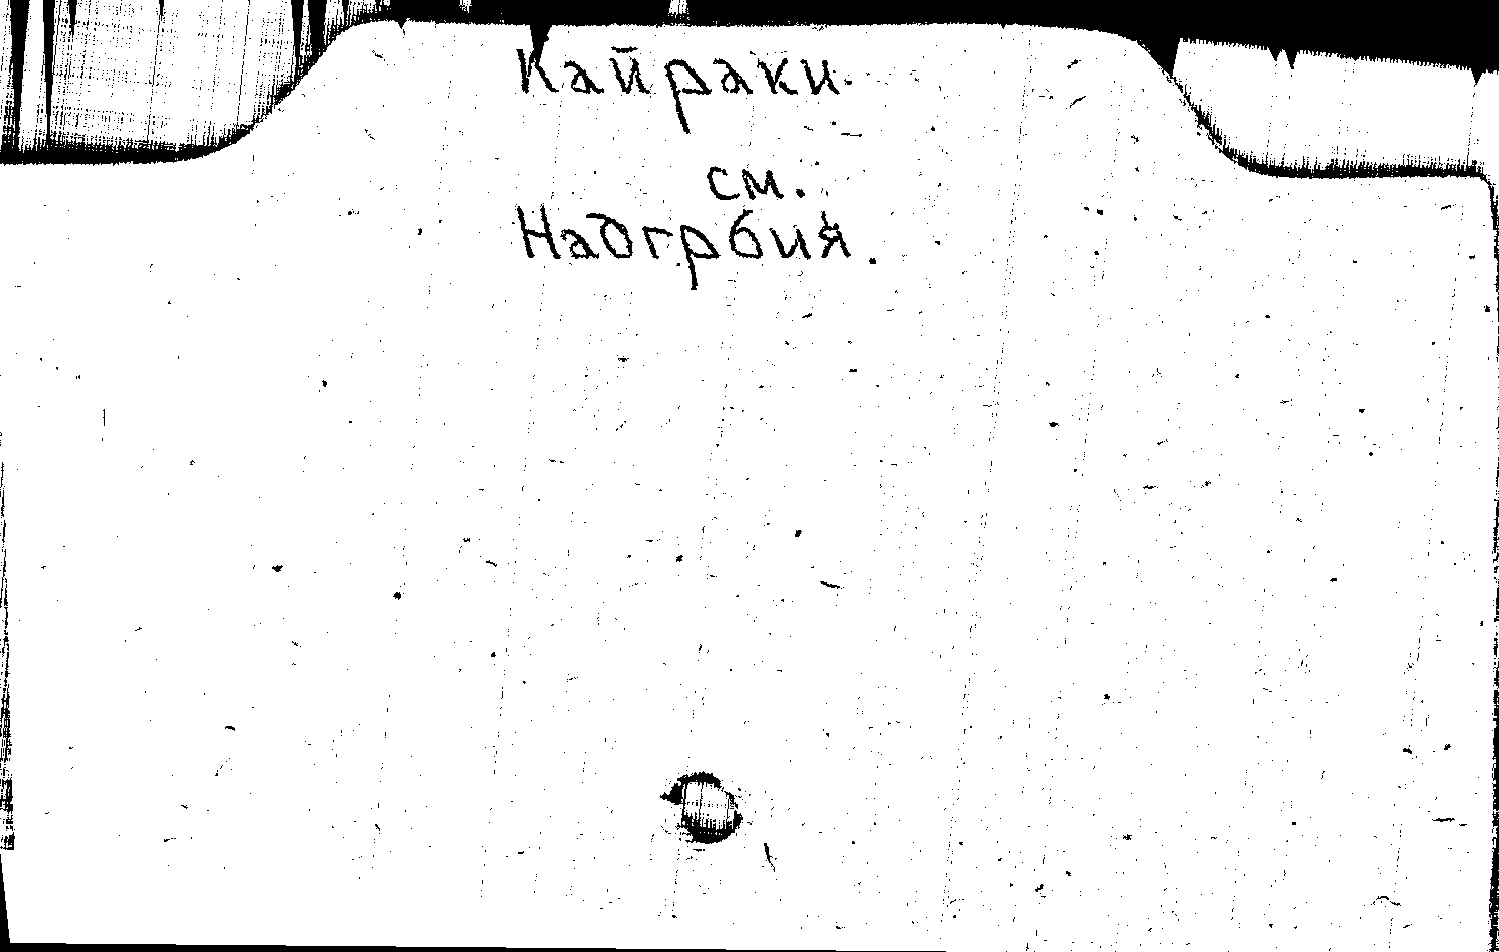 Кайраки.
см.
Надгрбия.